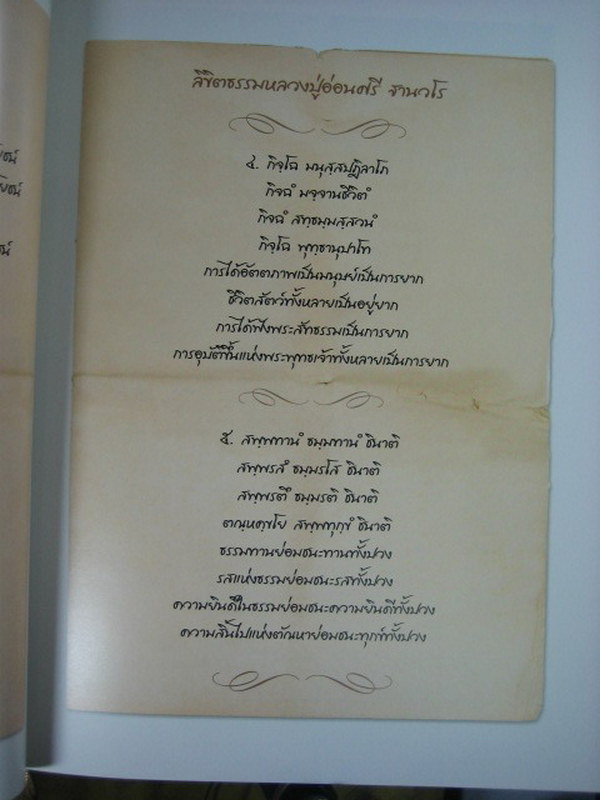 ลิขิตธรรมหลวงปู่อ่อนศรี ฐานวโร
๔. กิจฺโฉ มนุสฺสปฏิลาโภ
กิจฉํ มจฺจานชีวิตํ
กิจฉํ สทฺธมฺมสฺสวนํ
กิจฺโฉ พุทฺธานุปาโท
การได้อัตตภาพเป็นมนุษย์เป็นการยาก
ชีวิตสัตว์ทั้งหลายเป็นอยู่ยาก
การได้ฟังพระสัทธรรมเป็นการยาก
การอุบัติขึ้นแห่งพระพุทธเจ้าทั้งหลายเป็นการยาก
๕. สพฺพทานํ ธมฺมทานํ ชินาติ
สพฺพรสํ ธมฺมรโส ชินาติ
สพฺพรตึ ธมฺมรติ ชินาติ
ตณฺหกฺขโย สพฺพทุกฺขํ ชินาติ
ธรรมทานย่อมชนะทานทั้งปวง
รสแห่งธรรมย่อมชนะรสทั้งปวง
ความยินดีในธรรมย่อมชนะความยินดีทั้งปวง
ความสิ้นไปแห่งตัณหาย่อมชนะทุกข์ทั้งปวง